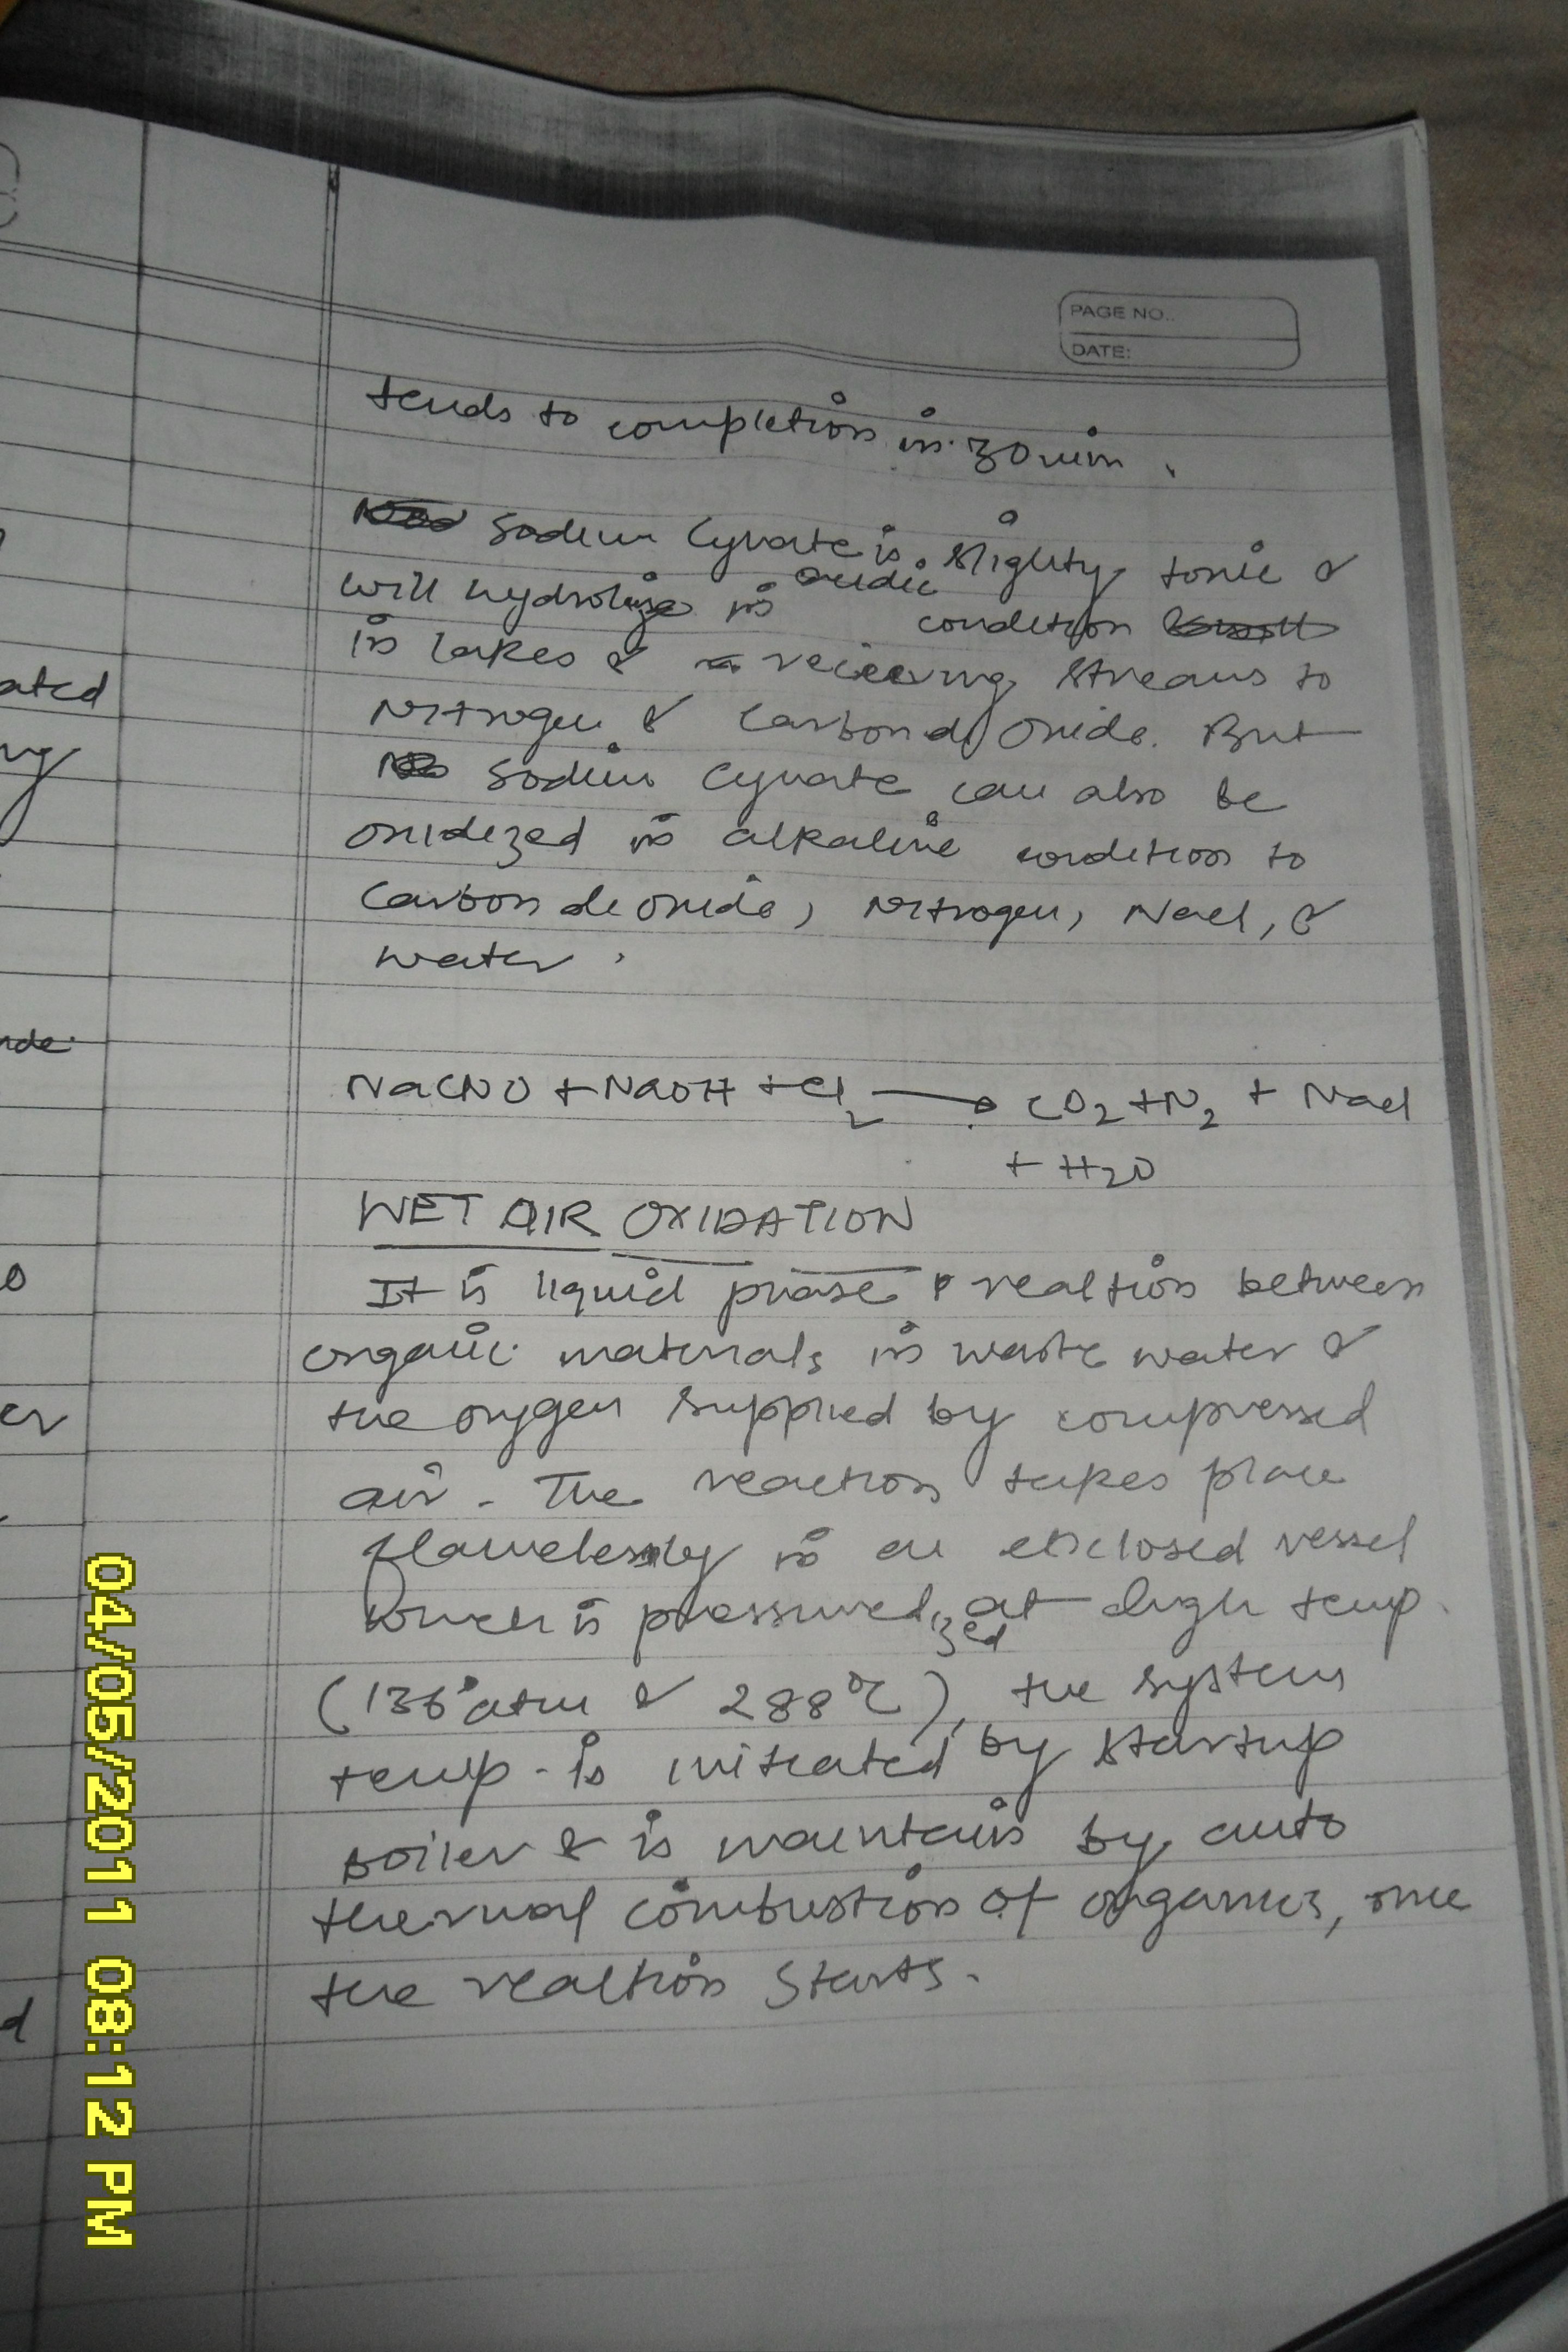 PAGE NO..
DATE:
tends to completion in 30 min.
Sodium Cynate is slighty toxic &
will hydrolize in acidic condition
in lakes & recieving streams to
Nitrogen & Carbondioxide. But
Sodium Cynate can also be
oxidized in alkaline condition to
Carbon dioxide, Nitrogen, NaCl, &
water.
NaCNO + NaOH + Cl2 → CO2 + N2 + NaCl
+ H2O
WET AIR OXIDATION
It is liquid phase reaction between
organic materials in waste water &
the oxygen supplied by compressed
air. The reaction takes place
flamelessly in an enclosed vessel
which is pressurized at high temp.
(136 atm & 288°C), the system
temp. is initiated by startup
boiler & is maintain by auto
thermal combustion of organics, once
the reaction starts.
ated
ng
nde
er
d
04/05/2011 08:12 PM